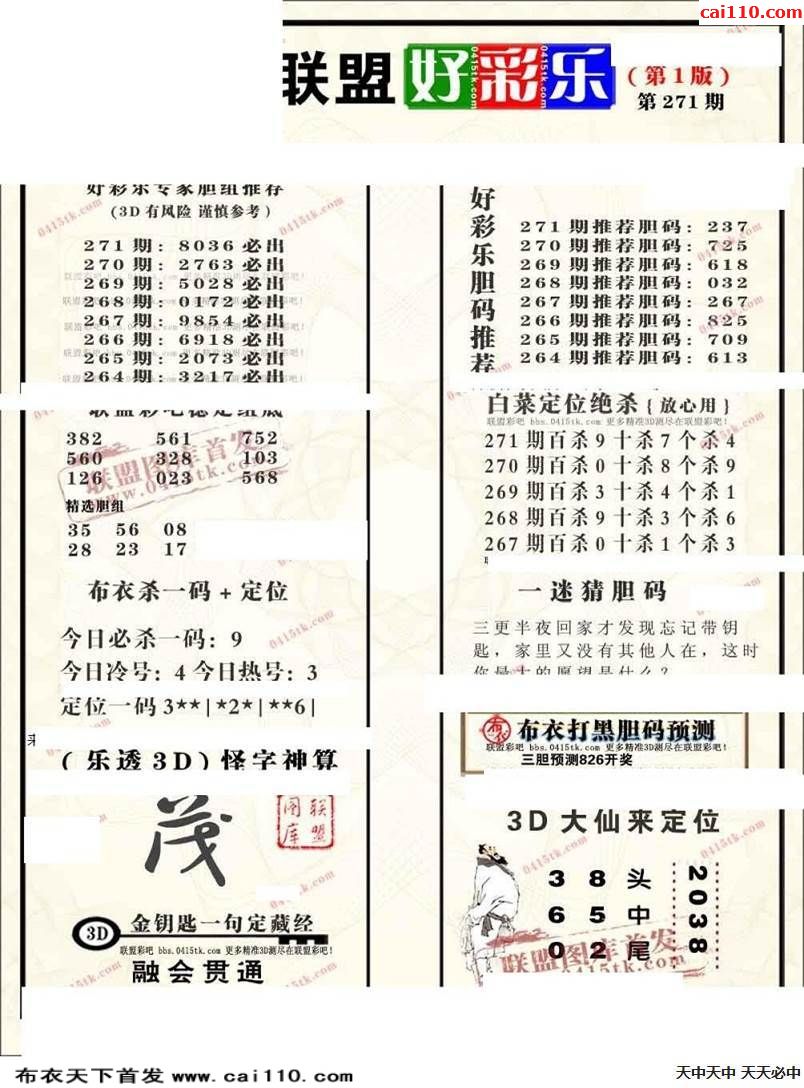 cai110.com
联盟 好彩乐
0415tk.com 0415tk.com 0415tk.com
(第1版)
第271期
好彩乐专家胆组推荐
(3D有风险 谨慎参考)
271期: 8036必出
270期: 2763必出
269期: 5028必出
268期: 0172必出
267期: 9854必出
266期: 6918必出
265期: 2073必出
264期: 3217必出
联盟彩吧稳定组底
382 561 752
560 328 103
126 023 568
联盟图库首发
www.0415tk.com
精选胆组
35 56 08
28 23 17
布衣杀一码+定位
今日必杀一码: 9
今日冷号: 4 今日热号: 3
定位一码3**|*2*|**6|
(乐透3D)怪字神算
茂
联盟图库
3D 金钥匙一句定藏经
联盟彩吧 bbs.0415tk.com 更多精准3D测尽在联盟彩吧!
融会贯通
好彩乐胆码推荐
271期推荐胆码: 237
270期推荐胆码: 725
269期推荐胆码: 618
268期推荐胆码: 032
267期推荐胆码: 267
266期推荐胆码: 825
265期推荐胆码: 709
264期推荐胆码: 613
白菜定位绝杀{放心用}
联盟彩吧 bbs.0415tk.com 更多精准3D测尽在联盟彩吧!
271期百杀9十杀7个杀4
270期百杀0十杀8个杀9
269期百杀3十杀4个杀1
268期百杀9十杀3个杀6
267期百杀0十杀1个杀3
一迷猜胆码
三更半夜回家才发现忘记带钥
匙,家里又没有其他人在,这时
你最大的愿望是什么?
布衣 布衣打黑胆码预测
联盟彩吧 bbs.0415tk.com 更多精准3D测尽在联盟彩吧!
三胆预测826开奖
3D大仙来定位
3 8 头
6 5 中
0 2 尾
2038
联盟图库首发
www.0415tk.com
布衣天下首发 www.cai110.com
天中天中 天天必中